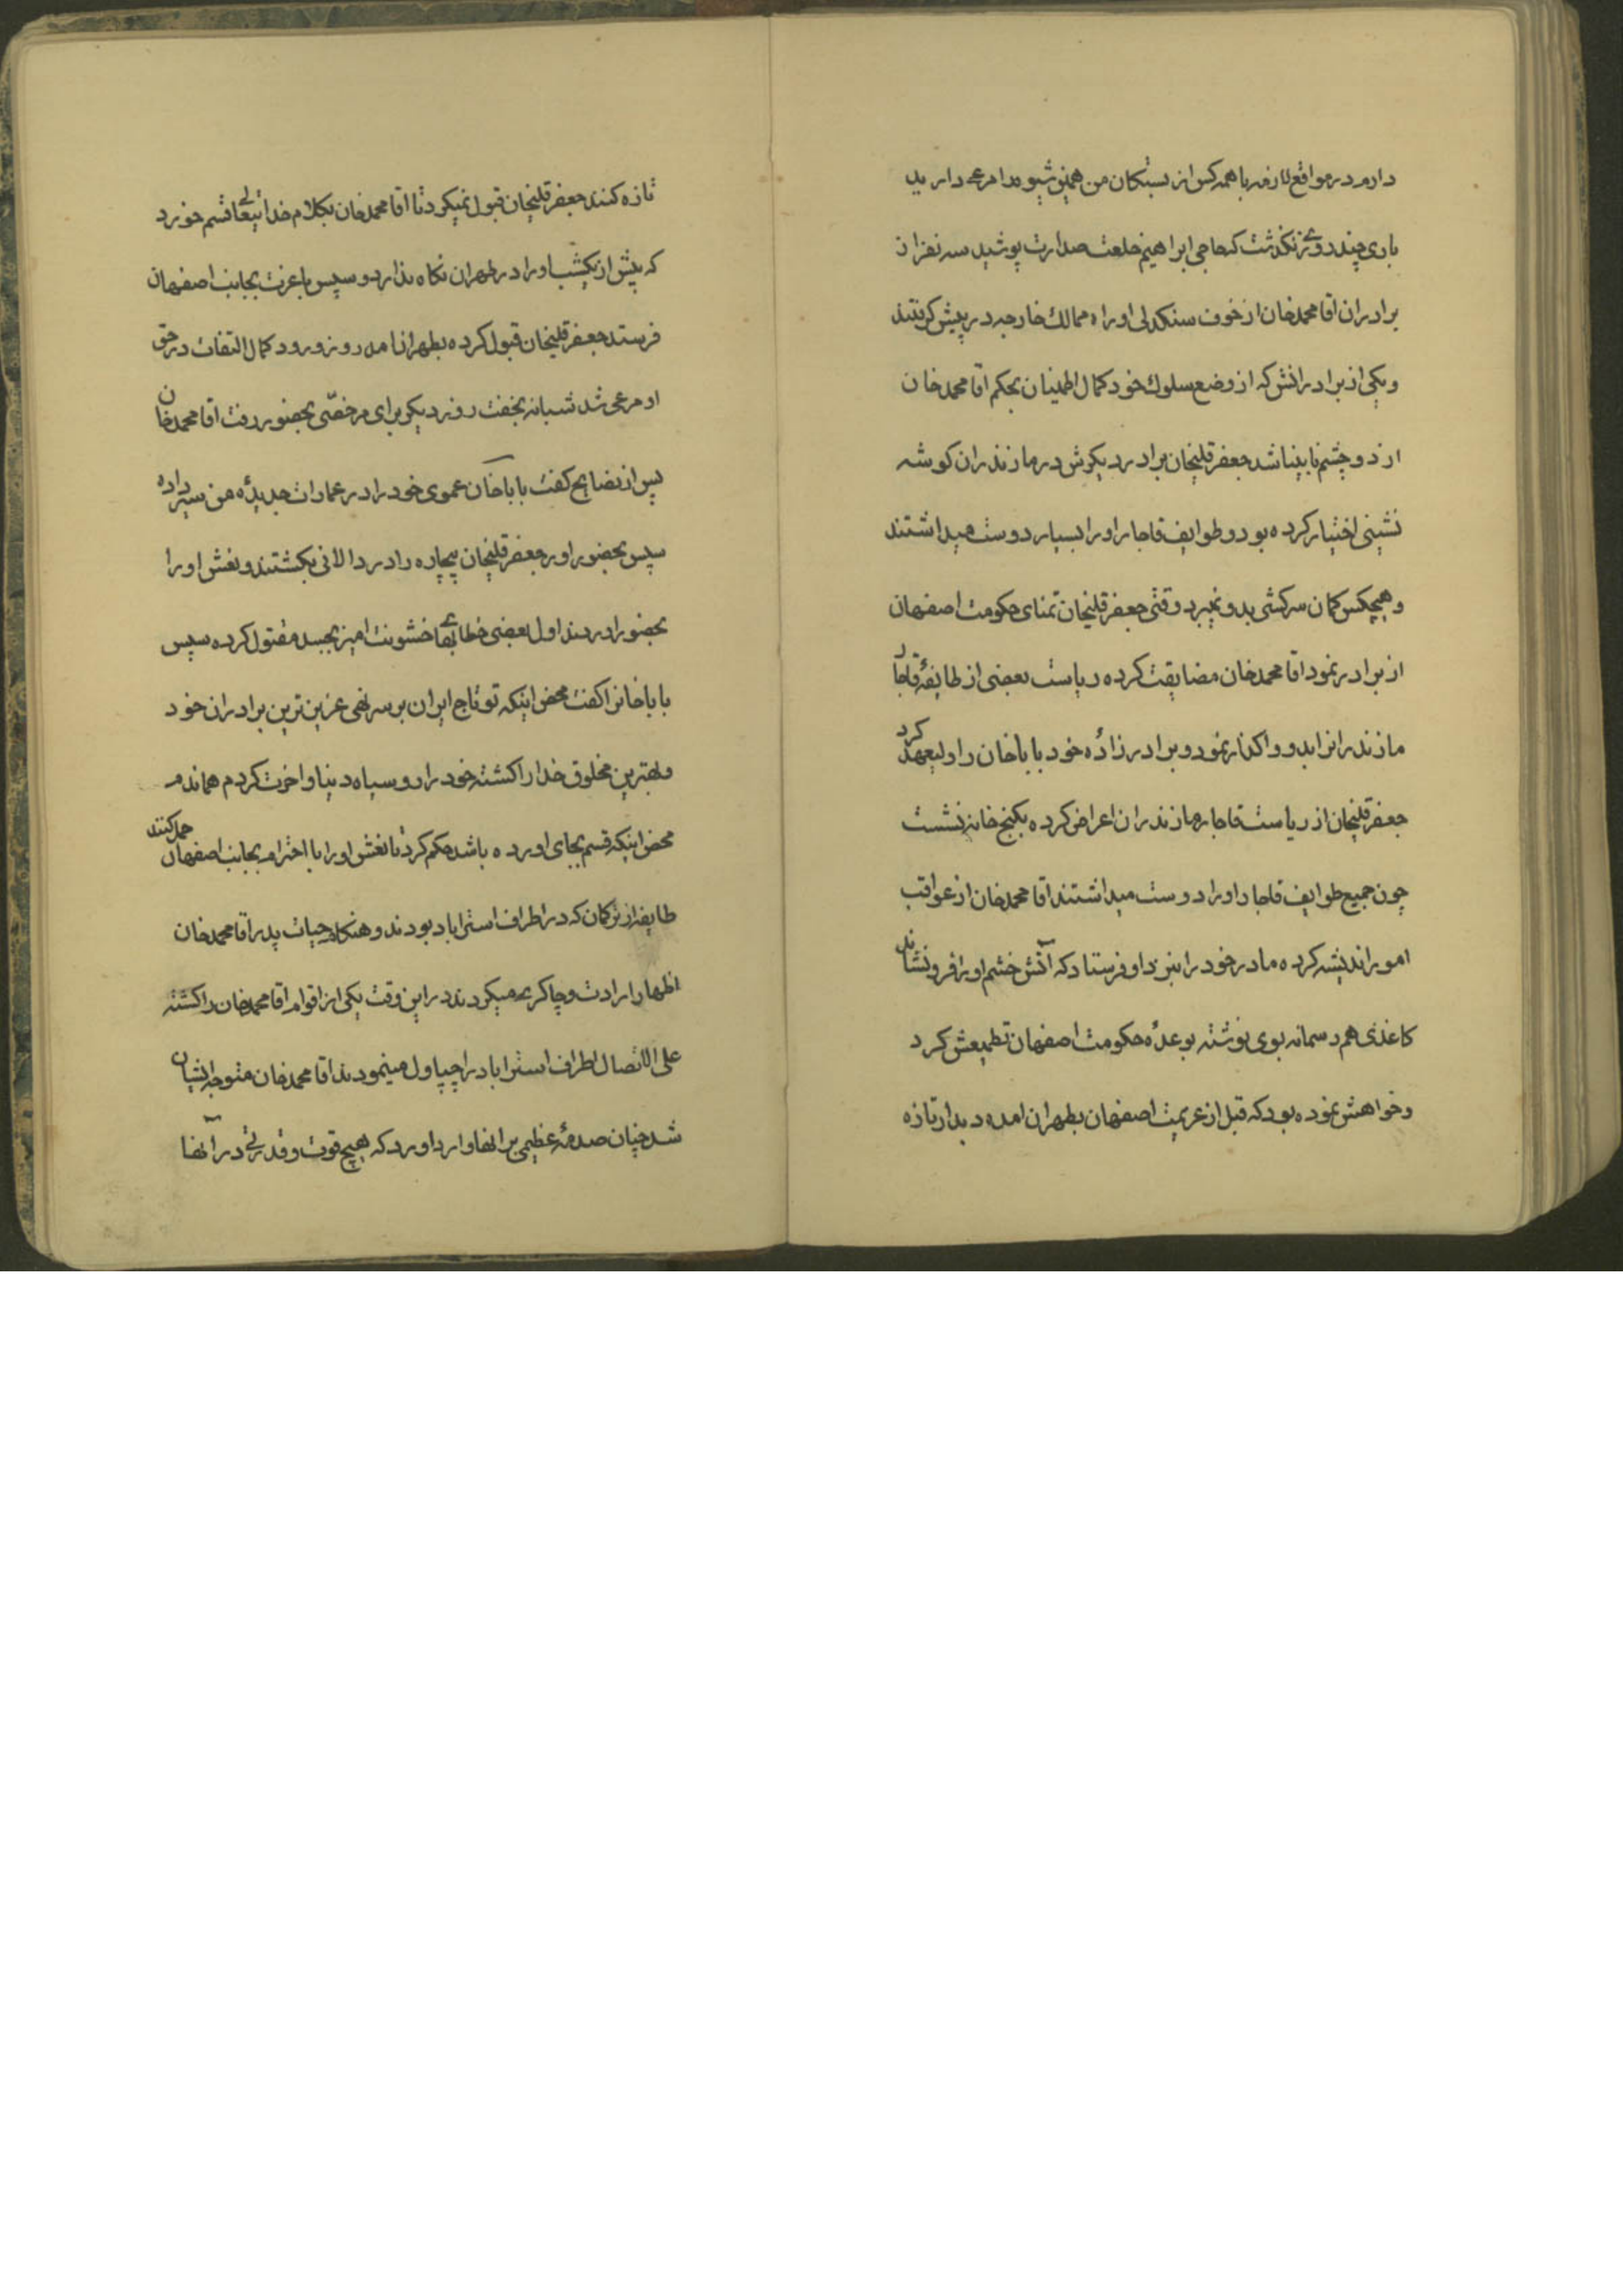 دارم در مواقع لازمه با همه کس از بستکان من همین شیوه را مرعی دارید
باری چند روزی نکذشت که حاجی ابراهیم خلعت صدارت پوشید سه نفر از
برادران اقا محمد خان از خوف سنکدلی او راه ممالک خارجه در پیش کرفتند
و یکی از برادرانش که از وضع سلوک خود کمال اطمینان بحکم اقا محمد خان
از دو چشم نابینا شد جعفر قلیخان برادر دیکرش در مازندران کوشه
نشینی اختیار کرده بود و طوایف قاجار او را بسیار دوست میداشتند
و هیچکس کمان سرکشی بدو نمیبرد وقتی جعفر قلیخان تمنای حکومت اصفهان
از برادر نمود اقا محمد خان مضایقت کرده ریاست بعضی از طایفهٔ قاجار
مازندرانرا بدو واکذار نمود و برادر زادهٔ خود بابا خان را ولیعهد کرد
جعفر قلیخان از ریاست قاجار مازندران اعراض کرده بکنج خانه نشست
چون جمیع طوایف قاجار او را دوست میداشتند اقا محمد خان از عواقب
امور اندیشه کرده مادر خود را بنزد او فرستاد که آتش خشم او را فرو نشاند
کاغذی هم رسمانه بوی نوشته بوعدهٔ حکومت اصفهان تطمیعش کرد
و خواهش نموده بود که قبل از عزیمت اصفهان بطهران امده دیدار تازه
تازه کنند جعفر قلیخان قبول نمیکرد تا اقا محمد خان بکلام خدایتعالی قسم خورد
که بیش از یکشب او را در طهران نکاه ندارد و سپس با عزت بجانب اصفهان
فرستد جعفر قلیخان قبول کرده بطهران امد روز ورود کمال التفات در حق
او مرعی شد شبانه بخفت روز دیکر برای مرخصی بحضور رفت اقا محمد خان
پس از نصایح کفت بابا خان عموی خود را در عمارات جدیدهٔ من سیر داده
سپس بحضور اور جعفر قلیخان بیچاره را در دالانی بکشتند و نعش او را
بحضور اوردند اول بعضی خطابهای خشونت امیز بجسد مقتول کرده سپس
بابا خانرا کفت محض اینکه تو تاج ایران بر سر نهی عزیزترین برادران خود
و بهترین مخلوق خدا را کشته خود را رو سیاه دنیا و اخرت کردم هماندم
محض اینکه قسم بجای اورده باشد حکم کرد تا نعش او را با احترام بجانب اصفهان حمل کنند
طایفه از ترکمان که در اطراف استراباد بودند و هنکام حیات پدر اقا محمد خان
اظهار ارادت و چاکری میکردند در این وقت یکی از اقوام اقا محمد خان را کشته
علی الاتصال اطراف استراباد را چپاول مینمودند اقا محمد خان متوجه ایشان
شد چنان صدمهٔ عظیمی برانها وارد اورد که هیچ قوت و قدرتی در آنها